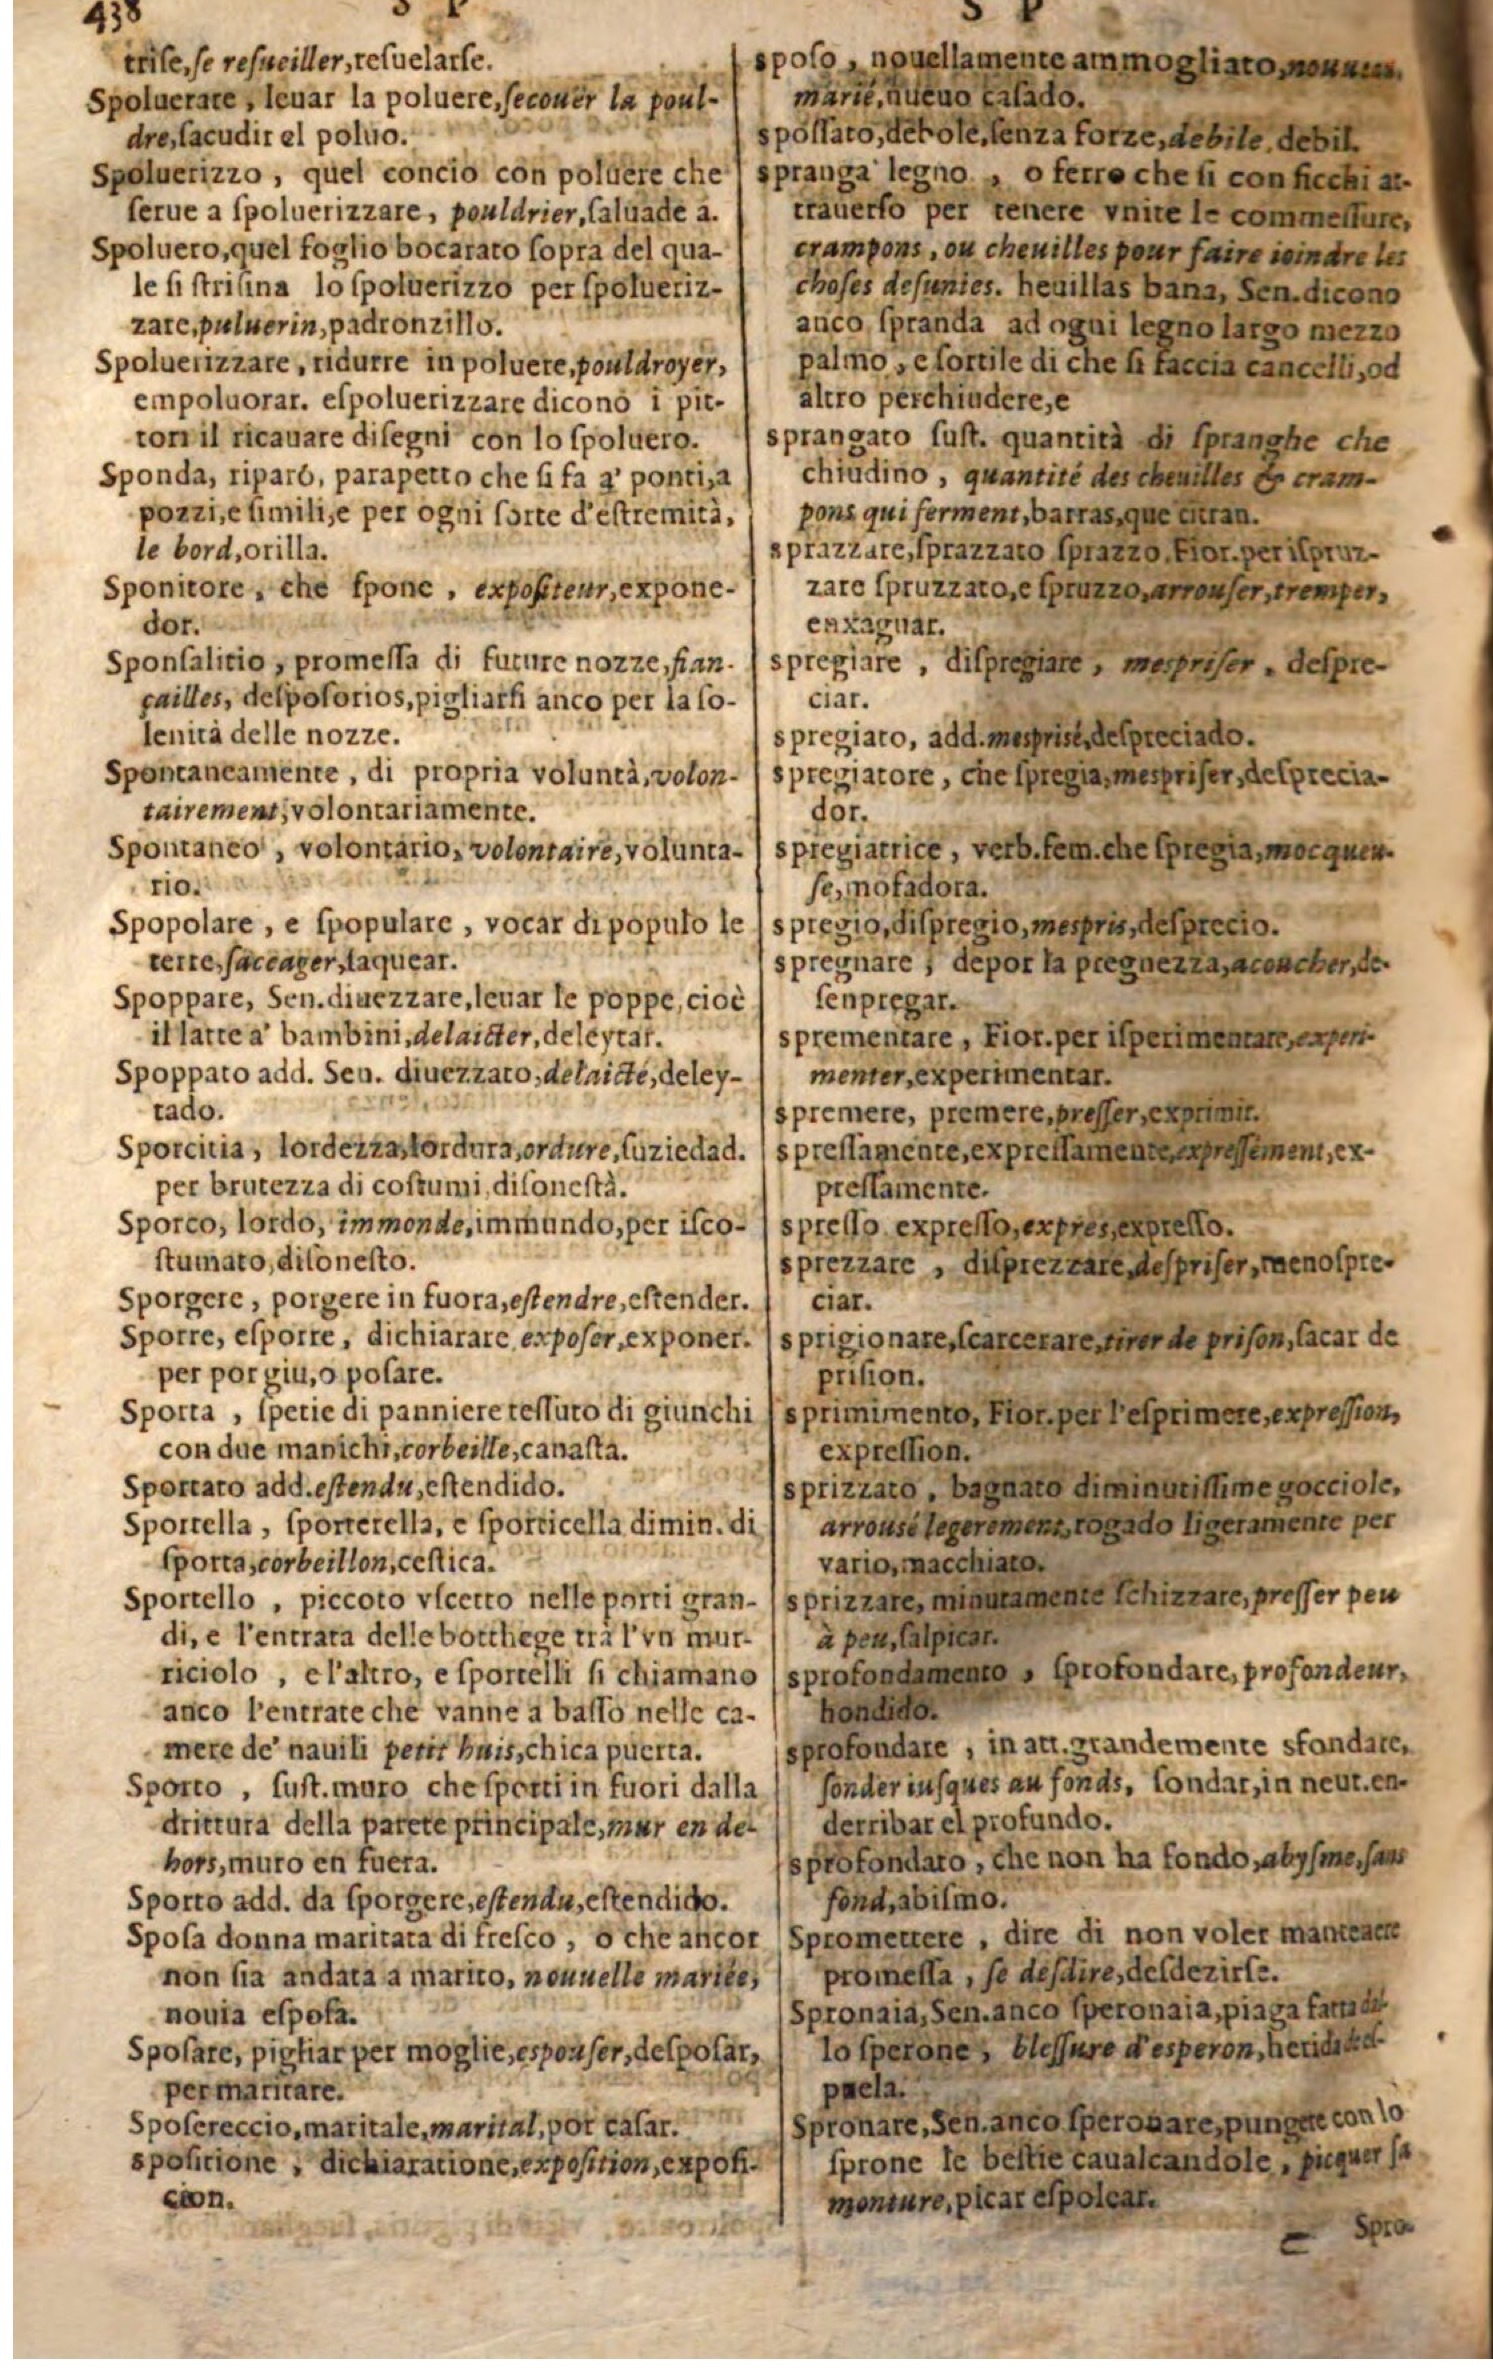 438 S P S P
triſe,ſe reſueiller,reſuelarſe.
Spoluerare , leuar la poluere,ſecouër la poul-
dre,ſacudir el poluo.
Spoluerizzo , quel concio con poluere che
ſerue a ſpoluerizzare, pouldrier,ſaluade a.
Spoluero,quel foglio bocarato ſopra del qua-
le ſi ſtriſina lo ſpoluerizzo per ſpolueriz-
zare,puluerin,padronzillo.
Spoluerizzare , ridurre in poluere,pouldroyer,
empoluorar. eſpoluerizzare dicono i pit-
tori il ricauare diſegni con lo ſpoluero.
Sponda, riparo, parapetto che ſi fa a' ponti,a
pozzi,e ſimili,e per ogni ſorte d'eſtremità,
le bord,orilla.
Sponitore , che ſpone , expoſiteur,expone-
dor.
Sponſalitio , promeſſa di future nozze,fian-
çailles, deſpoſorios,pigliarſi anco per la ſo-
lenità delle nozze.
Spontaneamente , di propria voluntà,volon-
tairement,volontariamente.
Spontaneo , volontario,volontaire,volunta-
rio.
Spopolare , e ſpopulare , vocar di populo le
terre,ſaccager,ſaquear.
Spoppare, Sen.diuezzare,leuar le poppe,cioè
il latte a' bambini,delaicter,deleytar.
Spoppato add. Sen. diuezzato,delaicté,deley-
tado.
Sporcitia , lordezza,lordura,ordure,ſuziedad.
per brutezza di coſtumi,diſoneſtà.
Sporco, lordo, immonde,immundo,per iſco-
ſtumato,diſoneſto.
Sporgere , porgere in fuora,eſtendre,eſtender.
Sporre, eſporre, dichiarare,expoſer,exponer.
per por giu,o poſare.
Sporta , ſpetie di panniere teſſuto di giunchi
con due manichi,corbeille,canaſta.
Sportato add.eſtendu,eſtendido.
Sportella , ſporterella, e ſporticella dimin. di
ſporta,corbeillon,ceſtica.
Sportello , piccoto vſcetto nelle porti gran-
di, e l'entrata delle botthege trà l'vn mur-
riciolo , e l'altro, e ſportelli ſi chiamano
anco l'entrate che vanne a baſſo nelle ca-
mere de' nauili petit huis,chica puerta.
Sporto , ſuſt.muro che ſporti in fuori dalla
drittura della parete principale,mur en de-
hors,muro en fuera.
Sporto add. da ſporgere,eſtendu,eſtendido.
Spoſa donna maritata di freſco , o che ancor
non ſia andata a marito, nouuelle mariée,
nouia eſpoſa.
Spoſare, pigliar per moglie,eſpouſer,deſpoſar,
per maritare.
Spoſereccio,maritale,marital,por caſar.
spoſitione , dichiaratione,expoſition,expoſi-
cion.
spoſo , nouellamente ammogliato,
marié,nueuo caſado.
spoſſato,debole,ſenza forze,debile,debil.
spranga legno , o ferro che ſi con ficchi at-
trauerſo per tenere vnite le commeſſure,
crampons, ou cheuilles pour faire ioindre les
choſes deſunies. heuillas bana, Sen.dicono
anco ſpranda ad ogni legno largo mezzo
palmo , e ſottile di che ſi faccia cancelli,od
altro perchiudere,e
sprangato ſuſt. quantità di ſpranghe che
chiudino , quantité des cheuilles & cram-
pons qui ferment,barras,que citran.
sprazzare,ſprazzato ſprazzo.Fior.per iſpruz-
zare ſpruzzato,e ſpruzzo,arrouſer,tremper,
enxaguar.
spregiare , diſpregiare , meſpriſer , deſpre-
ciar.
spregiato, add.meſpriſé,deſpreciado.
spregiatore , che ſpregia,meſpriſer,deſprecia-
dor.
spregiatrice , verb.fem.che ſpregia,mocqueu-
ſe,mofadora.
spregio,diſpregio,meſpris,deſprecio.
spregnare , depor la pregnezza,acoucher,de-
ſenpregar.
sprementare , Fior.per iſperimentare,experi-
menter,experimentar.
spremere, premere,preſſer,exprimir.
spreſſamente,expreſſamente,expreſſément,ex-
preſſamente.
spreſſo expreſſo,expres,expreſſo.
sprezzare , diſprezzare,deſpriſer,menoſpre-
ciar.
sprigionare,ſcarcerare,tirer de priſon,ſacar de
priſion.
sprimimento, Fior.per l'eſprimere,expreſſion,
expreſſion.
sprizzato , bagnato diminutiſſime gocciole,
arrouſé legerement,rogado ligeramente per
vario,macchiato.
sprizzare, minutamente ſchizzare,preſſer peu
à peu,ſalpicar.
sprofondamento , ſprofondare,profondeur,
hondido.
sprofondare , in att.grandemente sfondare,
ſonder iuſques au fonds, ſondar,in neut.en-
derribar el profundo.
sprofondato , che non ha fondo,abyſme,ſans
fond,abiſmo.
Spromettere , dire di non voler mantenere
promeſſa , ſe deſdire,deſdezirſe.
Spronaia,Sen.anco ſperonaia,piaga fatta dal-
lo ſperone , bleſſure d'eſperon,herida
puela.
Spronare,Sen.anco ſperonare,pungere con lo
ſprone le beſtie caualcandole , picquer ſa
monture,picar eſpolear.
Spro-